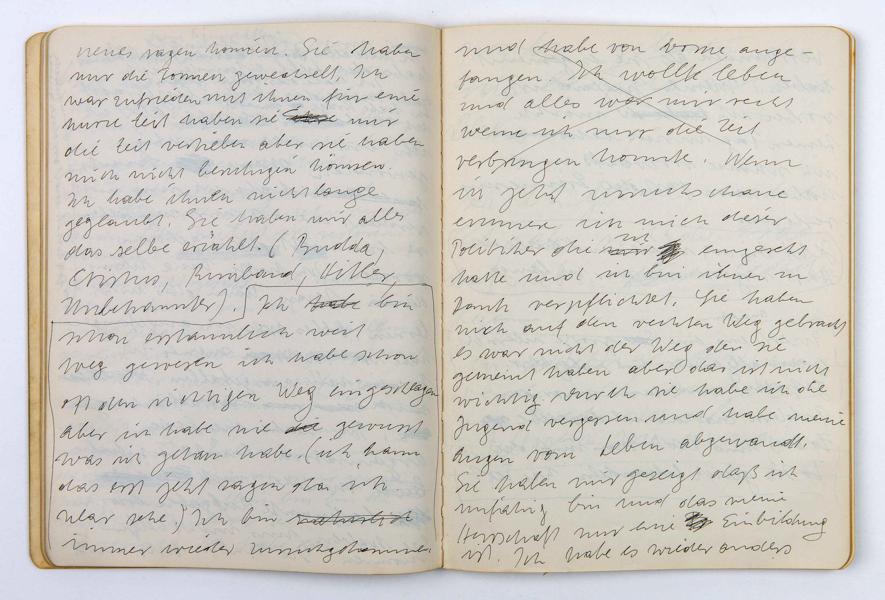 neues sagen können. Sie haben
nur die Formen gewechselt. Ich
war zufrieden mit ihnen für eine
kurze Zeit haben sie mir
die Zeit vertrieben aber sie haben
mich nicht beruhigen können
Ich habe ihnen nicht lange
geglaubt. Sie haben mir alles
das selbe erzählt. (Budda,
Christus, Rimbaud, Hitler,
Unbekannter). Ich habe bin
schon erstaunlich weit
weg gewesen ich habe schon
oft den richtigen Weg eingeschlagen
aber ich habe nie die gewusst
was ich getan habe. (ich kann
das erst jetzt sagen da ich
klar sehe.) Ich bin natürlich
immer wieder zurückgekommen
und habe von vorne ange-
fangen. Ich wollte leben
und alles war mir recht
wenn ich nur die Zeit
verbringen konnte. Wenn
ich jetzt zurückschaue
erinnere ich mich dieser
Politiker die ich eingesetzt
hatte und ich bin ihnen zu
Dank verpflichtet. Sie haben
mich auf den rechten Weg gebracht
es war nicht der Weg den sie
gemeint haben aber das ist nicht
wichtig durch sie habe ich die
Jugend vergessen und habe meine
Augen vom Leben abgewandt.
Sie haben mir gezeigt daß ich
unfähig bin und das meine
Herrschaft nur eine Einbildung
ist. Ich habe es wieder anders